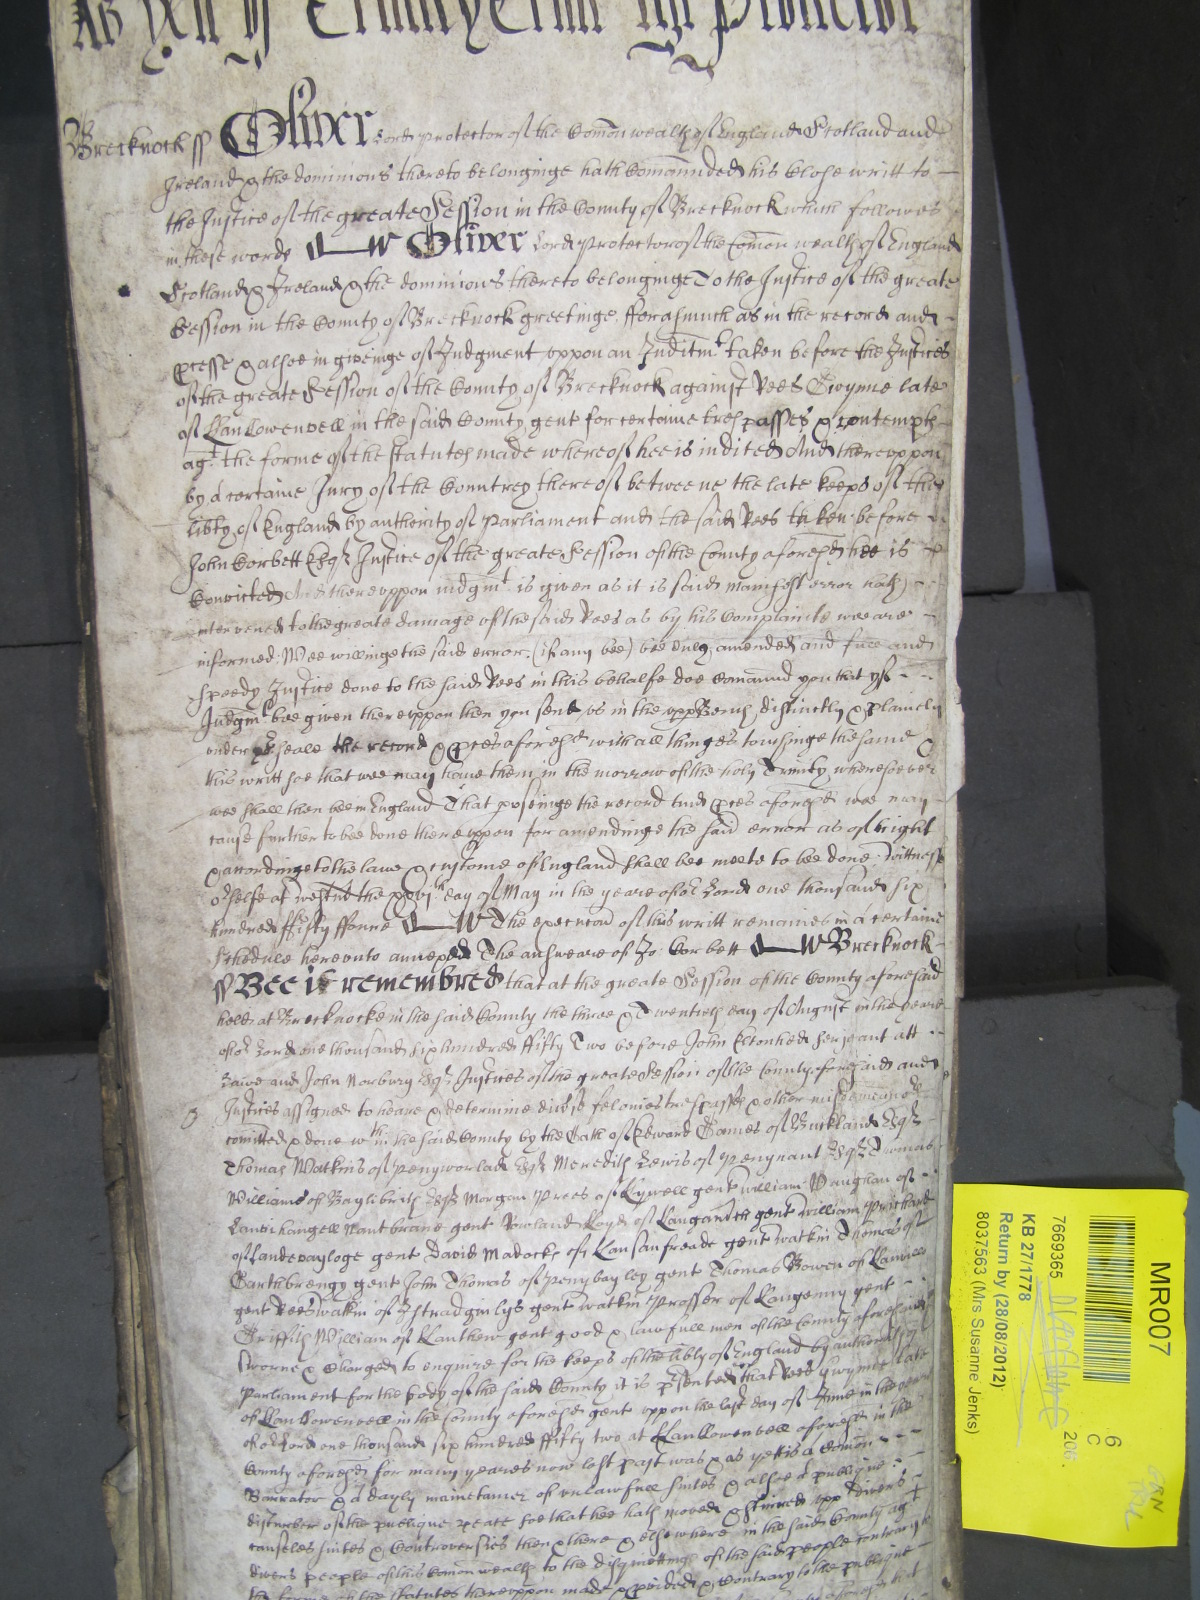 As yett of Trinity Terme Lord Protector
Brecknock ss Oliver Lord Protector of the Comonwealth of England Scotland and
Ireland & the dominions thereto belonginge hath Comaunded his Close writt to
the Justice of the greate Session in the County of Brecknock which followes
in these words Oliver Lord Protector of the Comon wealth of England
Scotland & Ireland & the dominions thereto belonginge To the Justice of the greate
Session in the County of Brecknock greetinge fforasmuch as in the record and
pcesse & alsoe in giveinge of Judgment uppon an Inditmt taken before the Justices
of the greate Session of the County of Brecknock against Rees Gwynne late
of Llanllowenvell in the said County gent for certaine trespasses & contempts
agt the forme of the statutes made whereof hee is indited And thereuppon
by a certaine Jury of the Countrey thereof betweene the late keeps of the
libty of England by authority of Parliament and the said Rees taken before
John Corbett Esqr Justice of the greate Session of the County aforesd hee is
Convicted And thereuppon iudgmt is given as it is said Manifest error hath
intervened to the greate damage of the said Rees as by his Complainte wee are
informed: Wee willinge the said error (if any bee) bee duly amended and full and
speedy Justice done to the said Rees in this behalfe doe Comaund you that yf
Judgmt bee given thereuppon then you send us in the uppBench distinctly & plainely
under yr seale the record & pces aforesd with all thinges touchinge the same &
this writt soe that wee may have them in the morrow of the holy Trinity wheresoever
wee shall then bee in England That the record and pces aforesd wee may
cause further to bee done thereuppon for amendinge the said error as of right
& accordinge to the lawe & custome of England shall bee meete to bee done Wittnesse
orselfe at Westmr the xxvjth day of May in the yeare of or Lord one thousand six
hundred ffifty ffoure The execucon of this writt remaines in a certaine
schedule hereunto annexed The answeare of Jo Corbett Brecknock
ss Bee it remembred that at the great Session of the County aforesaid
held at Brecknocke in the said County the three & Twentieth day of August in the yeare
of or Lord one thousand six hundred ffifty Two before John Eltonhed Serjeant att
Lawe and John Norbury Esqr Justices of the greate Session of the County aforesaid and
Justices assigned to heare & determine divse felonies trespasses & other misdemeanors
comitted & done wthin the said County by the Oath of Edward Games of Buckland Esqr
Thomas Watkins of Penyworlad Esqr Meredith Lewis of Pengnant Esqr Thomas
Williams of Baylibrith Esqr Morgan Prees of gent William Vaughan of
Lanvihangell Nantbrane gent Rowland Loyd of gent William Prichard
of Landevayloge gent David Madocks of Llansanfreade gent Watkin Thomas of
Garthbrengy gent John Thomas of Penybayley gent Thomas Bowen of
gent Rees Watkin of Istradginlys gent Watkin Prosser of Langenny gent
Griffith William of Llanthew gent good & lawfull men of the County aforesaid
sworne & Charged to enquire for the keeps of the libty of England by authority of
Parliament for the body of the said County it is psented that Rees Gwynne late
of Llanllowenvell in the County aforesd gent uppon the last day of June in the yeare
of or Lord one thousand six hundred ffifty two at Llanllowenvell aforesd in the
County aforesd for many yeares now last past was & as yett is a Comon
Barrator & a dayly mainetainer of unlawfull suites & alsoe a publique
disturber of the publique peace soe that hee hath moved & stirred upp divers
causeles suites & Controversies then & there & elsewhere in the said County agt
divers people of this Comon wealth to the disquietting of the said people contrary to
the forme of the statutes thereuppon made & pvided & Contrary to the publique
MR007
6
C
7669365
206
KB 27/1778
Return by (28/08/2012)
8037563 (Mrs Susanne Jenks)